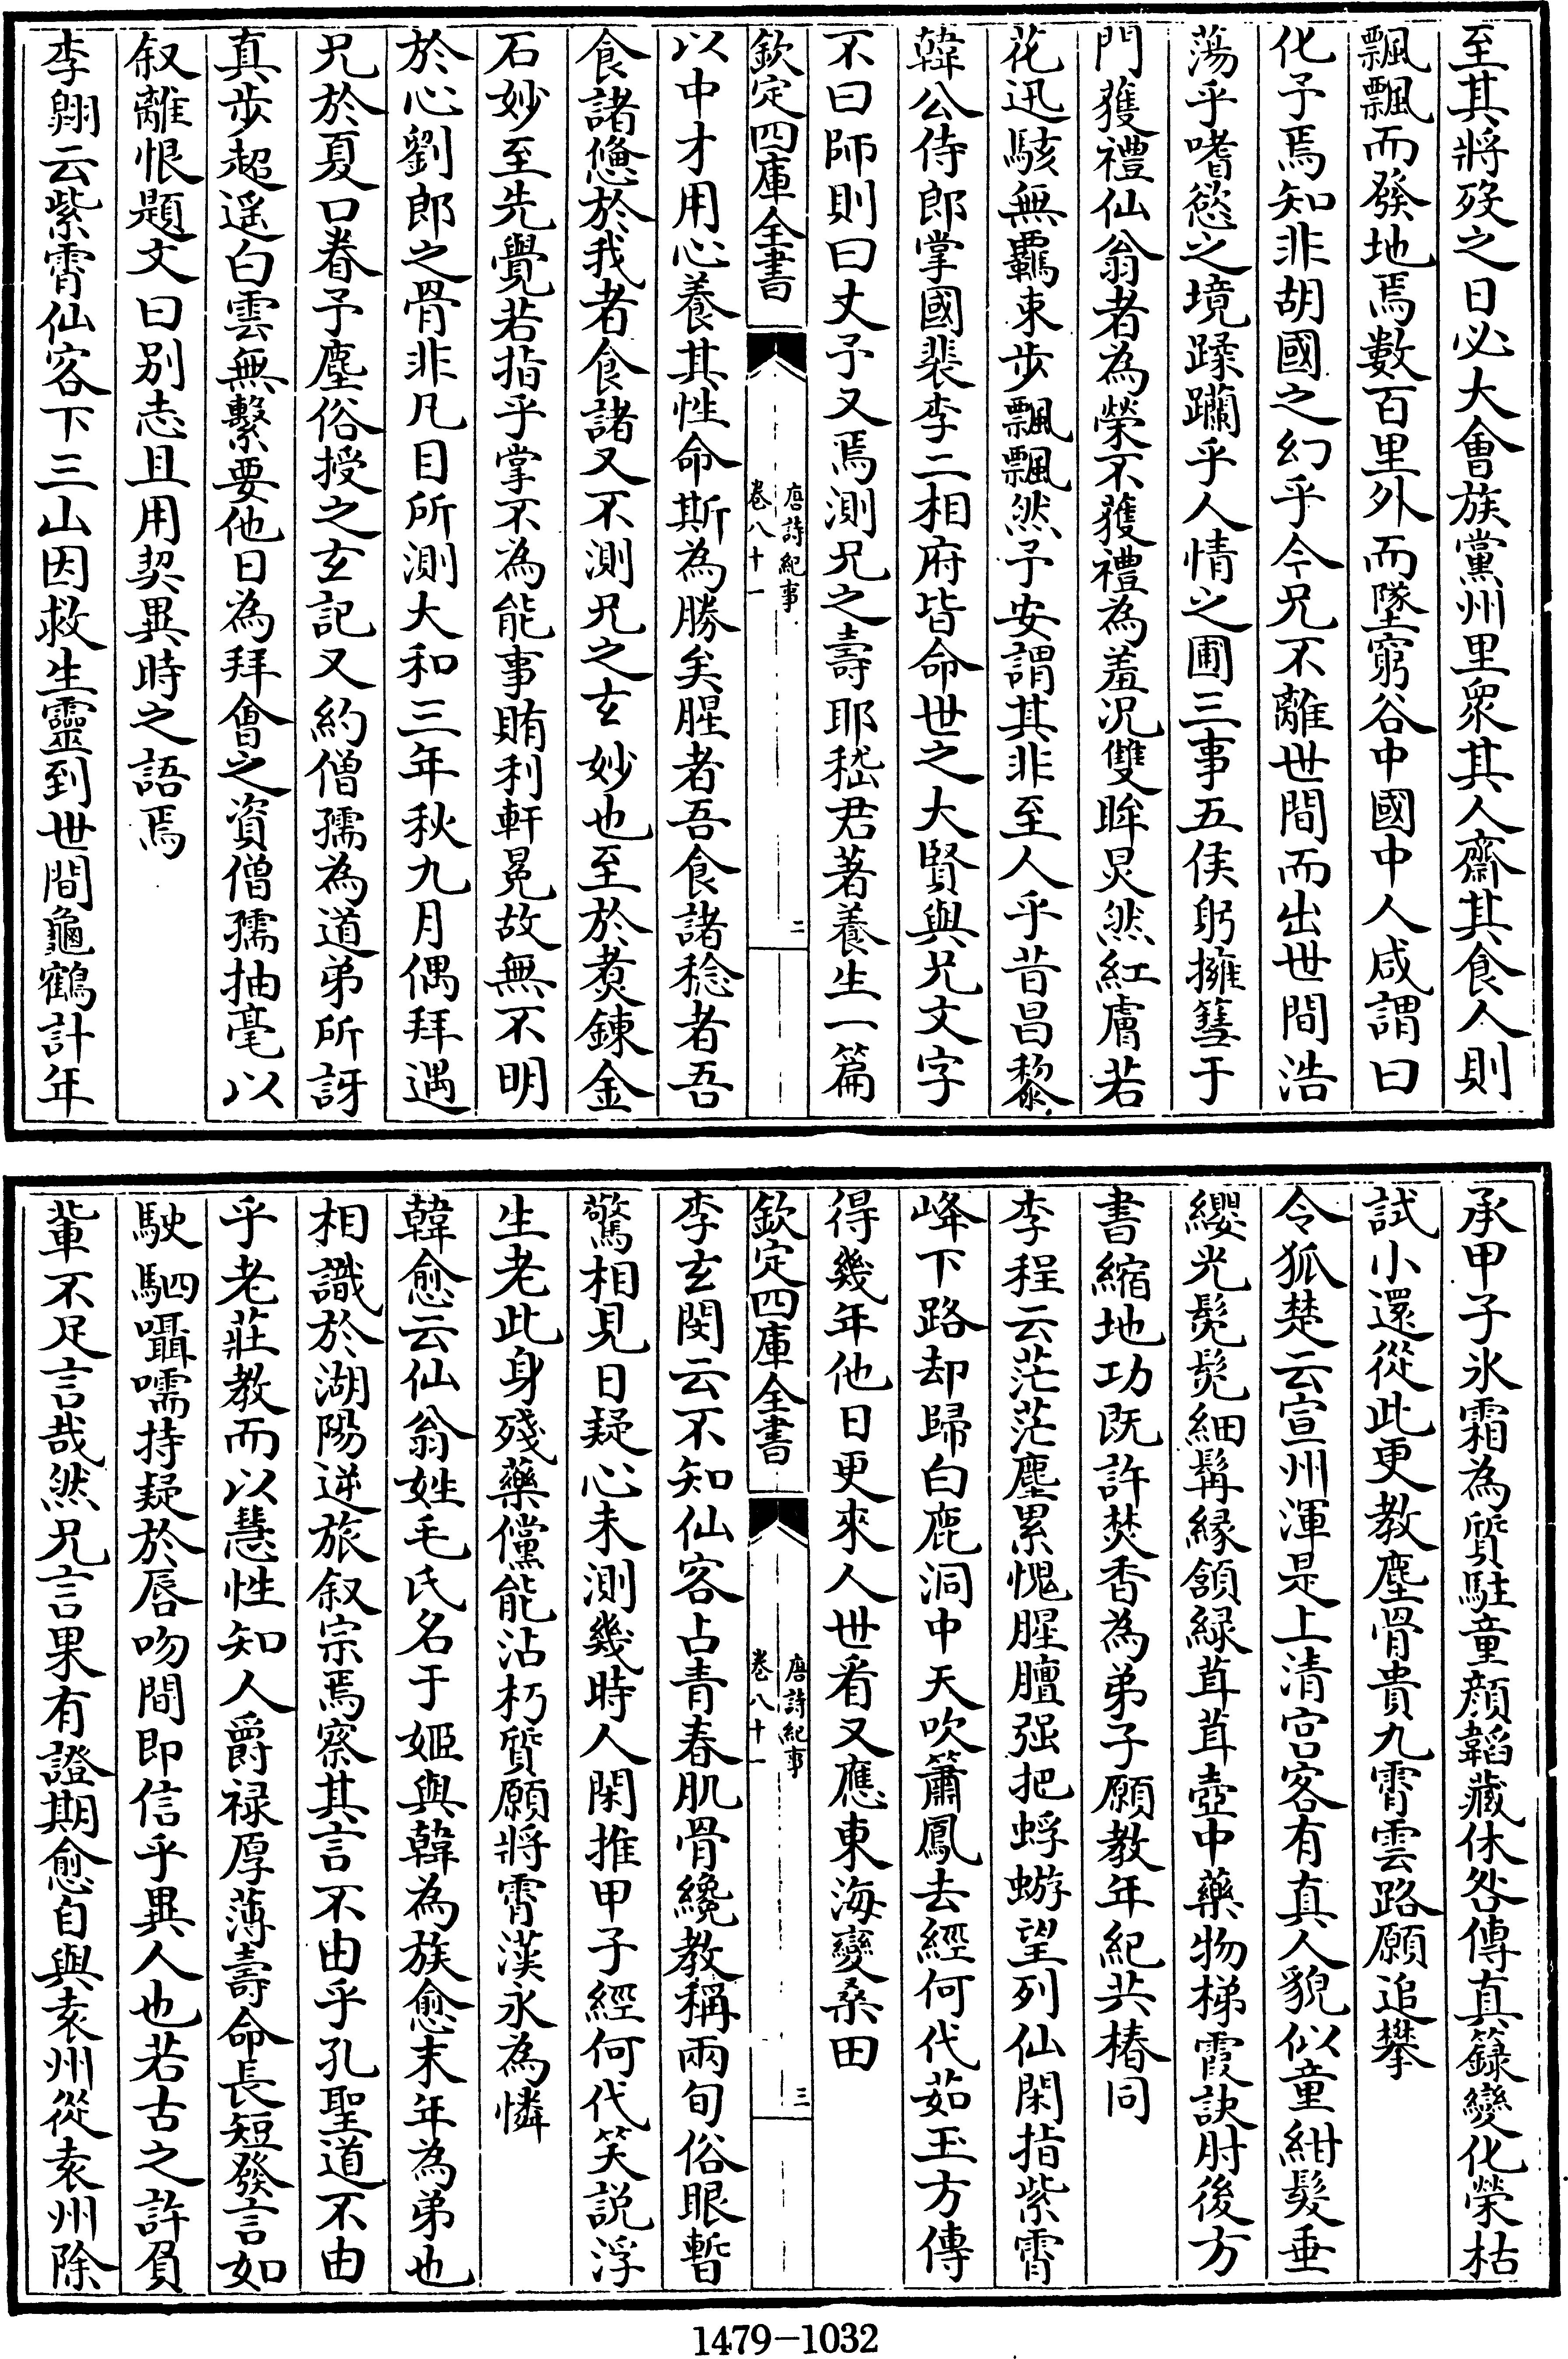 至其將歿之日必大會族黨州里衆其人齋其食人則
飄飄而發地焉數百里外而墜窮谷中國中人咸謂曰
化予焉知非胡國之幻乎今兄不離世間而出世間浩
蕩乎嗜慾之境蹂躪乎人情之圃三事五侯躬擁篲于
門獲禮仙翁者為榮不獲禮為羞况雙眸炅然紅膚若
花迅駭無覊束步飄飄然予安謂其非至人乎昔昌黎
韓公侍郎掌國裴李二相府皆命世之大賢與兄文字
不曰師則曰丈予又焉測兄之壽耶嵇君著養生一篇
欽定四庫全書
唐詩紀事
卷八十一
二
以中才用心養其性命斯為勝矣腥者吾食諸稔者吾
食諸憊於我者食諸又不測兄之玄妙也至於煑鍊金
石妙至先覺若指乎掌不為能事賄利軒冕故無不明
於心劉郎之骨非凡目所測大和三年秋九月偶拜遇
兄於夏口眷予塵俗授之玄記又約僧孺為道弟所訝
真步超遥白雲無繫要他日為拜會之資僧孺抽毫以
叙離恨題文曰别志且用契異時之語焉
李翺云紫霄仙客下三山因救生靈到世間龜鶴計年
承甲子氷霜為質駐童顔韜藏休咎傳真籙變化榮枯
試小還從此更教塵骨貴九霄雲路願追攀
令狐楚云宣州渾是上清宫客有真人貌似童紺髮垂
纓光髧髧細髯緣頷緑茸茸壺中藥物梯霞訣肘後方
書縮地功既許焚香為弟子願教年紀共椿同
李程云茫茫塵累愧腥膻强把蜉蝣望列仙閑指紫霄
峰下路却歸白鹿洞中天吹簫鳳去經何代茹玉方傳
得幾年他日更來人世看又應東海變桑田
欽定四庫全書
唐詩紀事
卷八十一
三
李玄閔云不知仙客占青春肌骨纔教稱兩旬俗眼暫
驚相見日疑心未測幾時人閑推甲子經何代笑説浮
生老此身殘藥儻能沾朽質願將霄漢永為憐
韓愈云仙翁姓毛氏名于姬與韓為族愈末年為弟也
相識於湖陽逆旅叙宗焉察其言不由乎孔聖道不由
乎老莊教而以慧性知人爵禄厚薄壽命長短發言如
駛駟囁嚅持疑於唇吻間即信乎異人也若古之許負
軰不足言哉然兄言果有證期愈自與袁州從袁州除
1479-1032